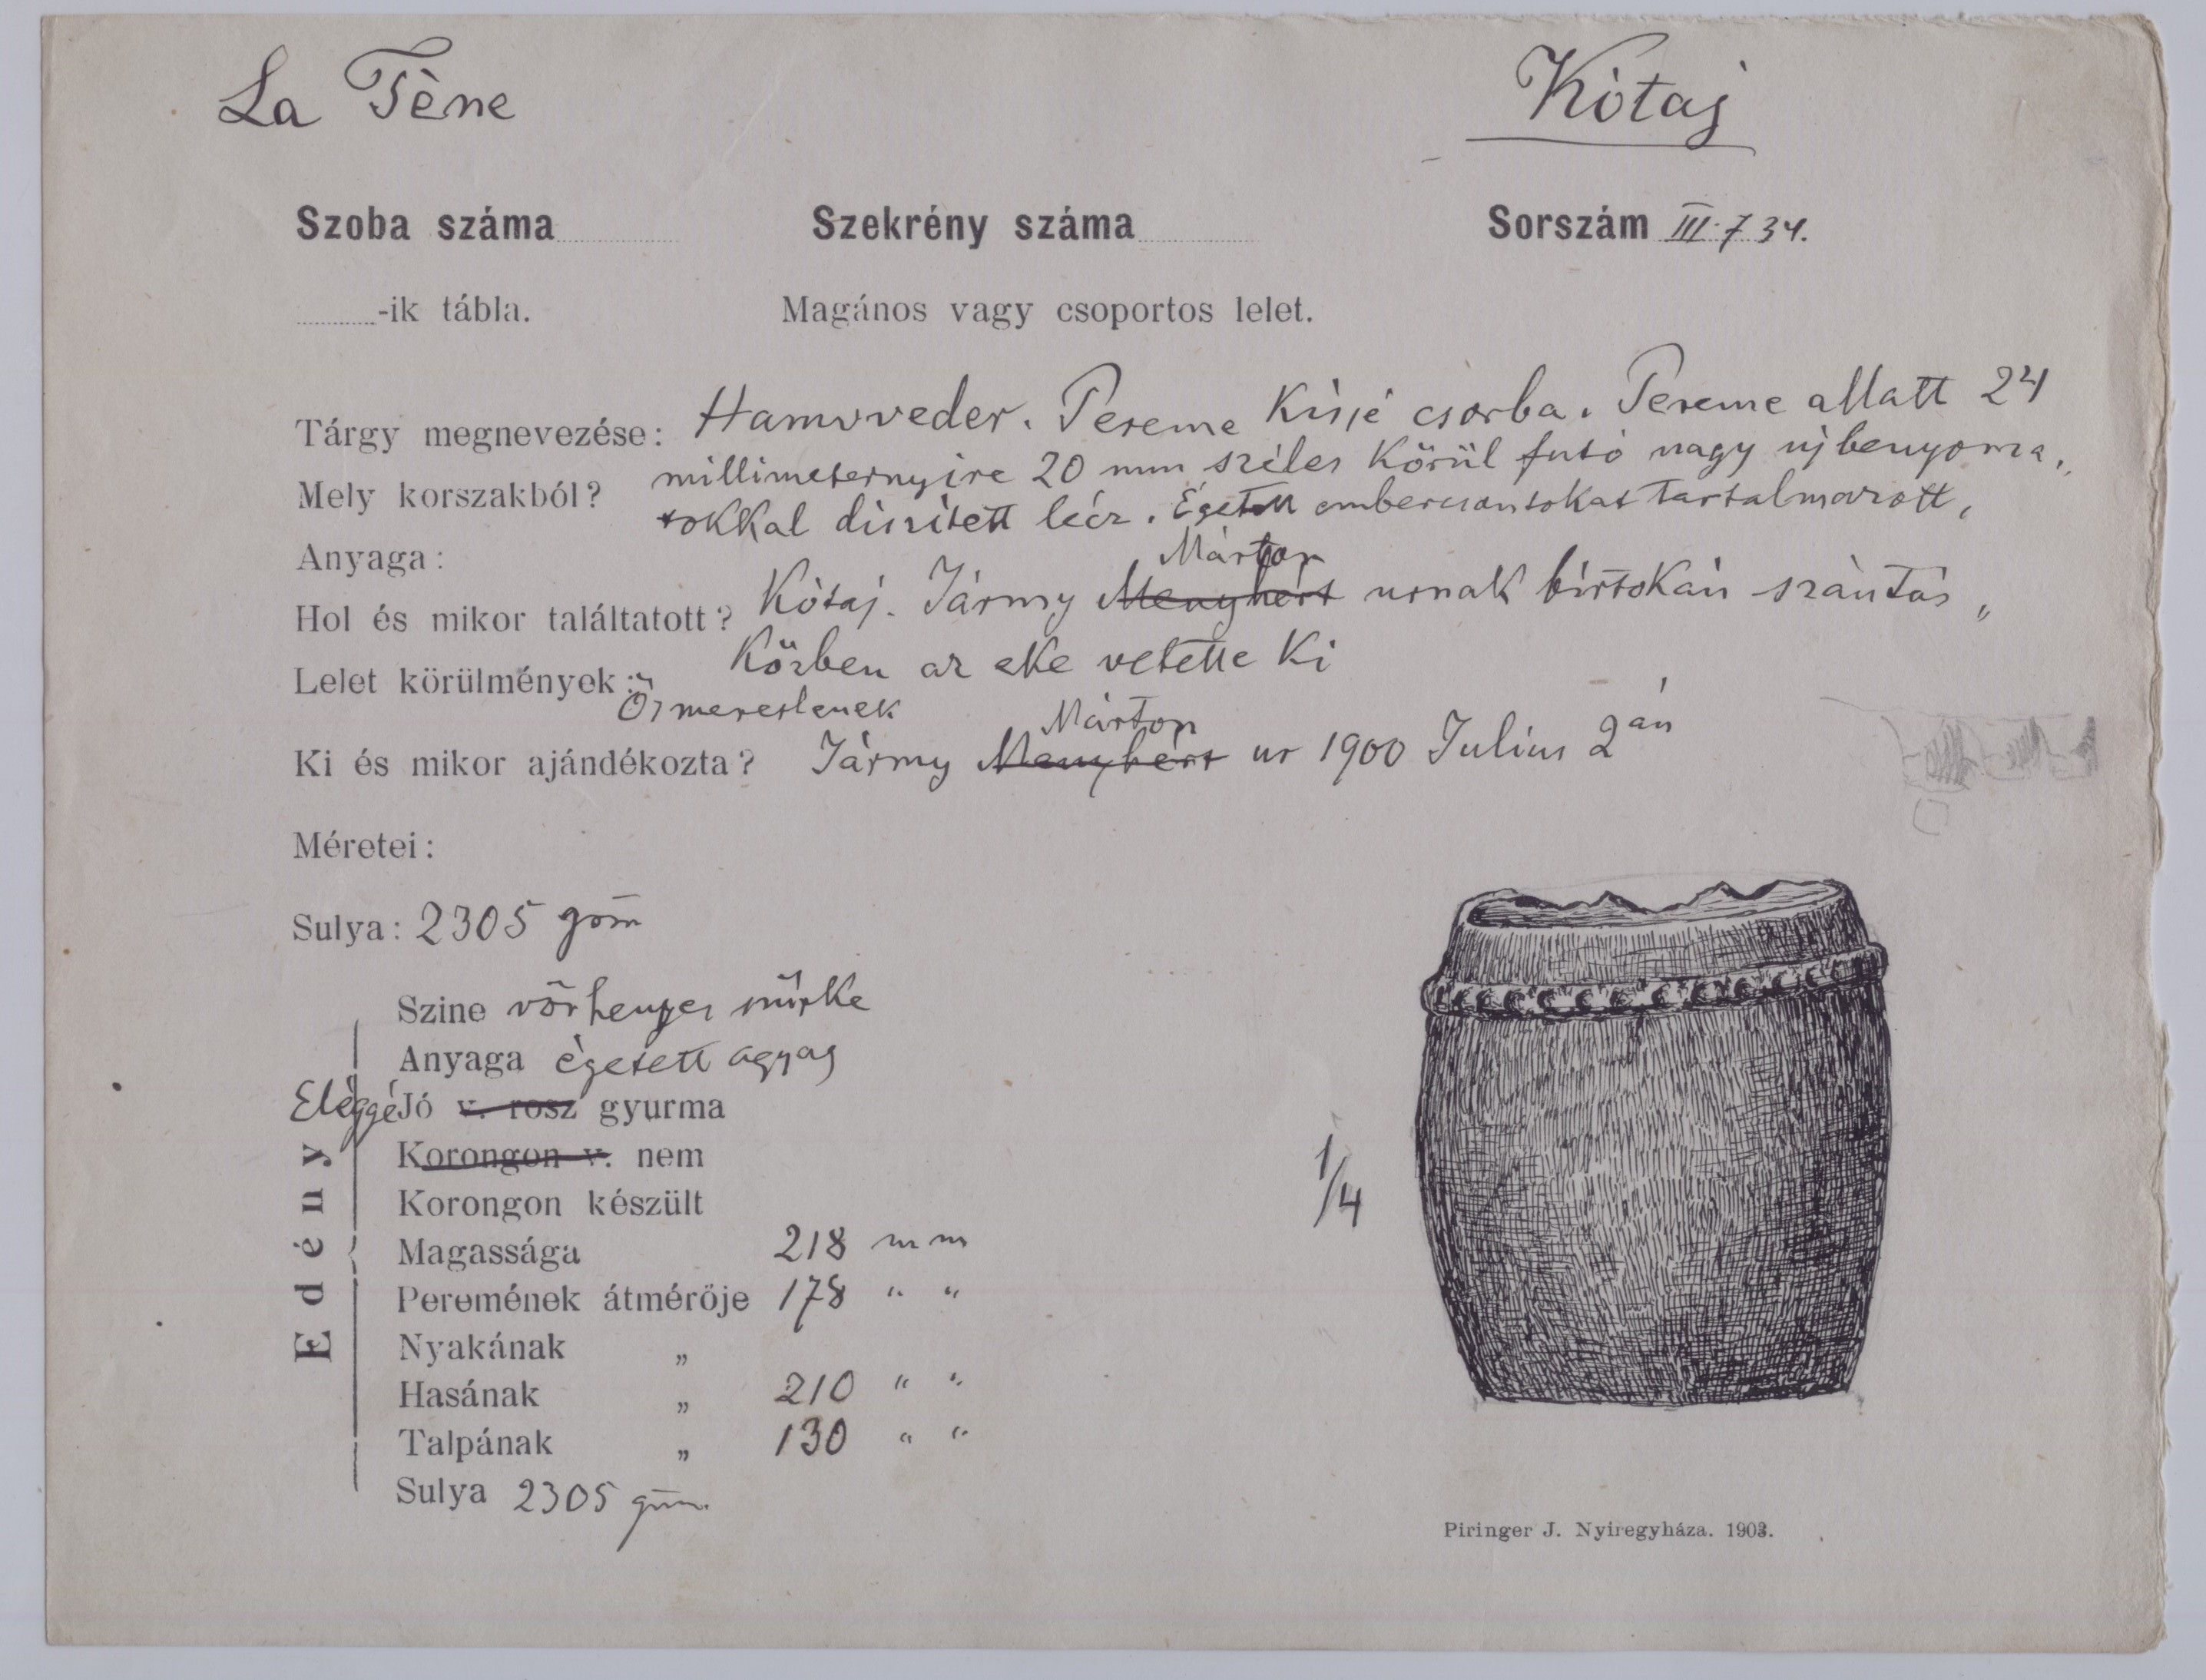 La Tène
Kótaj
Szoba száma Szekrény száma Sorszám III. 734.
-ik tábla. Magános vagy csoportos lelet.
Tárgy megnevezése: Hamvveder. Pereme kissé csorba. Pereme allatt 24
Mely korszakból? millimeternyire 20 mm széles körül futó nagy ujbenyoma„
tokkal diszitett lécz. Égetett embercsontokat tartalmazott.
Anyaga:
Márton
Hol és mikor találtatott? Kótaj. Jármy Menyhért urnak birtokán szántás„
közben az eke vetette ki
Lelet körülmények:
Ki és mikor ajándékozta? Jármy Menyhért ur 1900 Julius 2án
Márton
Méretei:
Sulya: 2305 gm
Szine vörhenyes szürke
Anyaga égetett agyag
Eléggé Jó v. rosz gyurma
Korongon v. nem
Korongon készült
Magassága 218 mm
Peremének átmérője 178 " "
Nyakának „
Hasának „ 210 " "
Talpának „ 130 " "
Sulya 2305 gm.
Edény
1/4
Piringer J. Nyiregyháza. 1903.